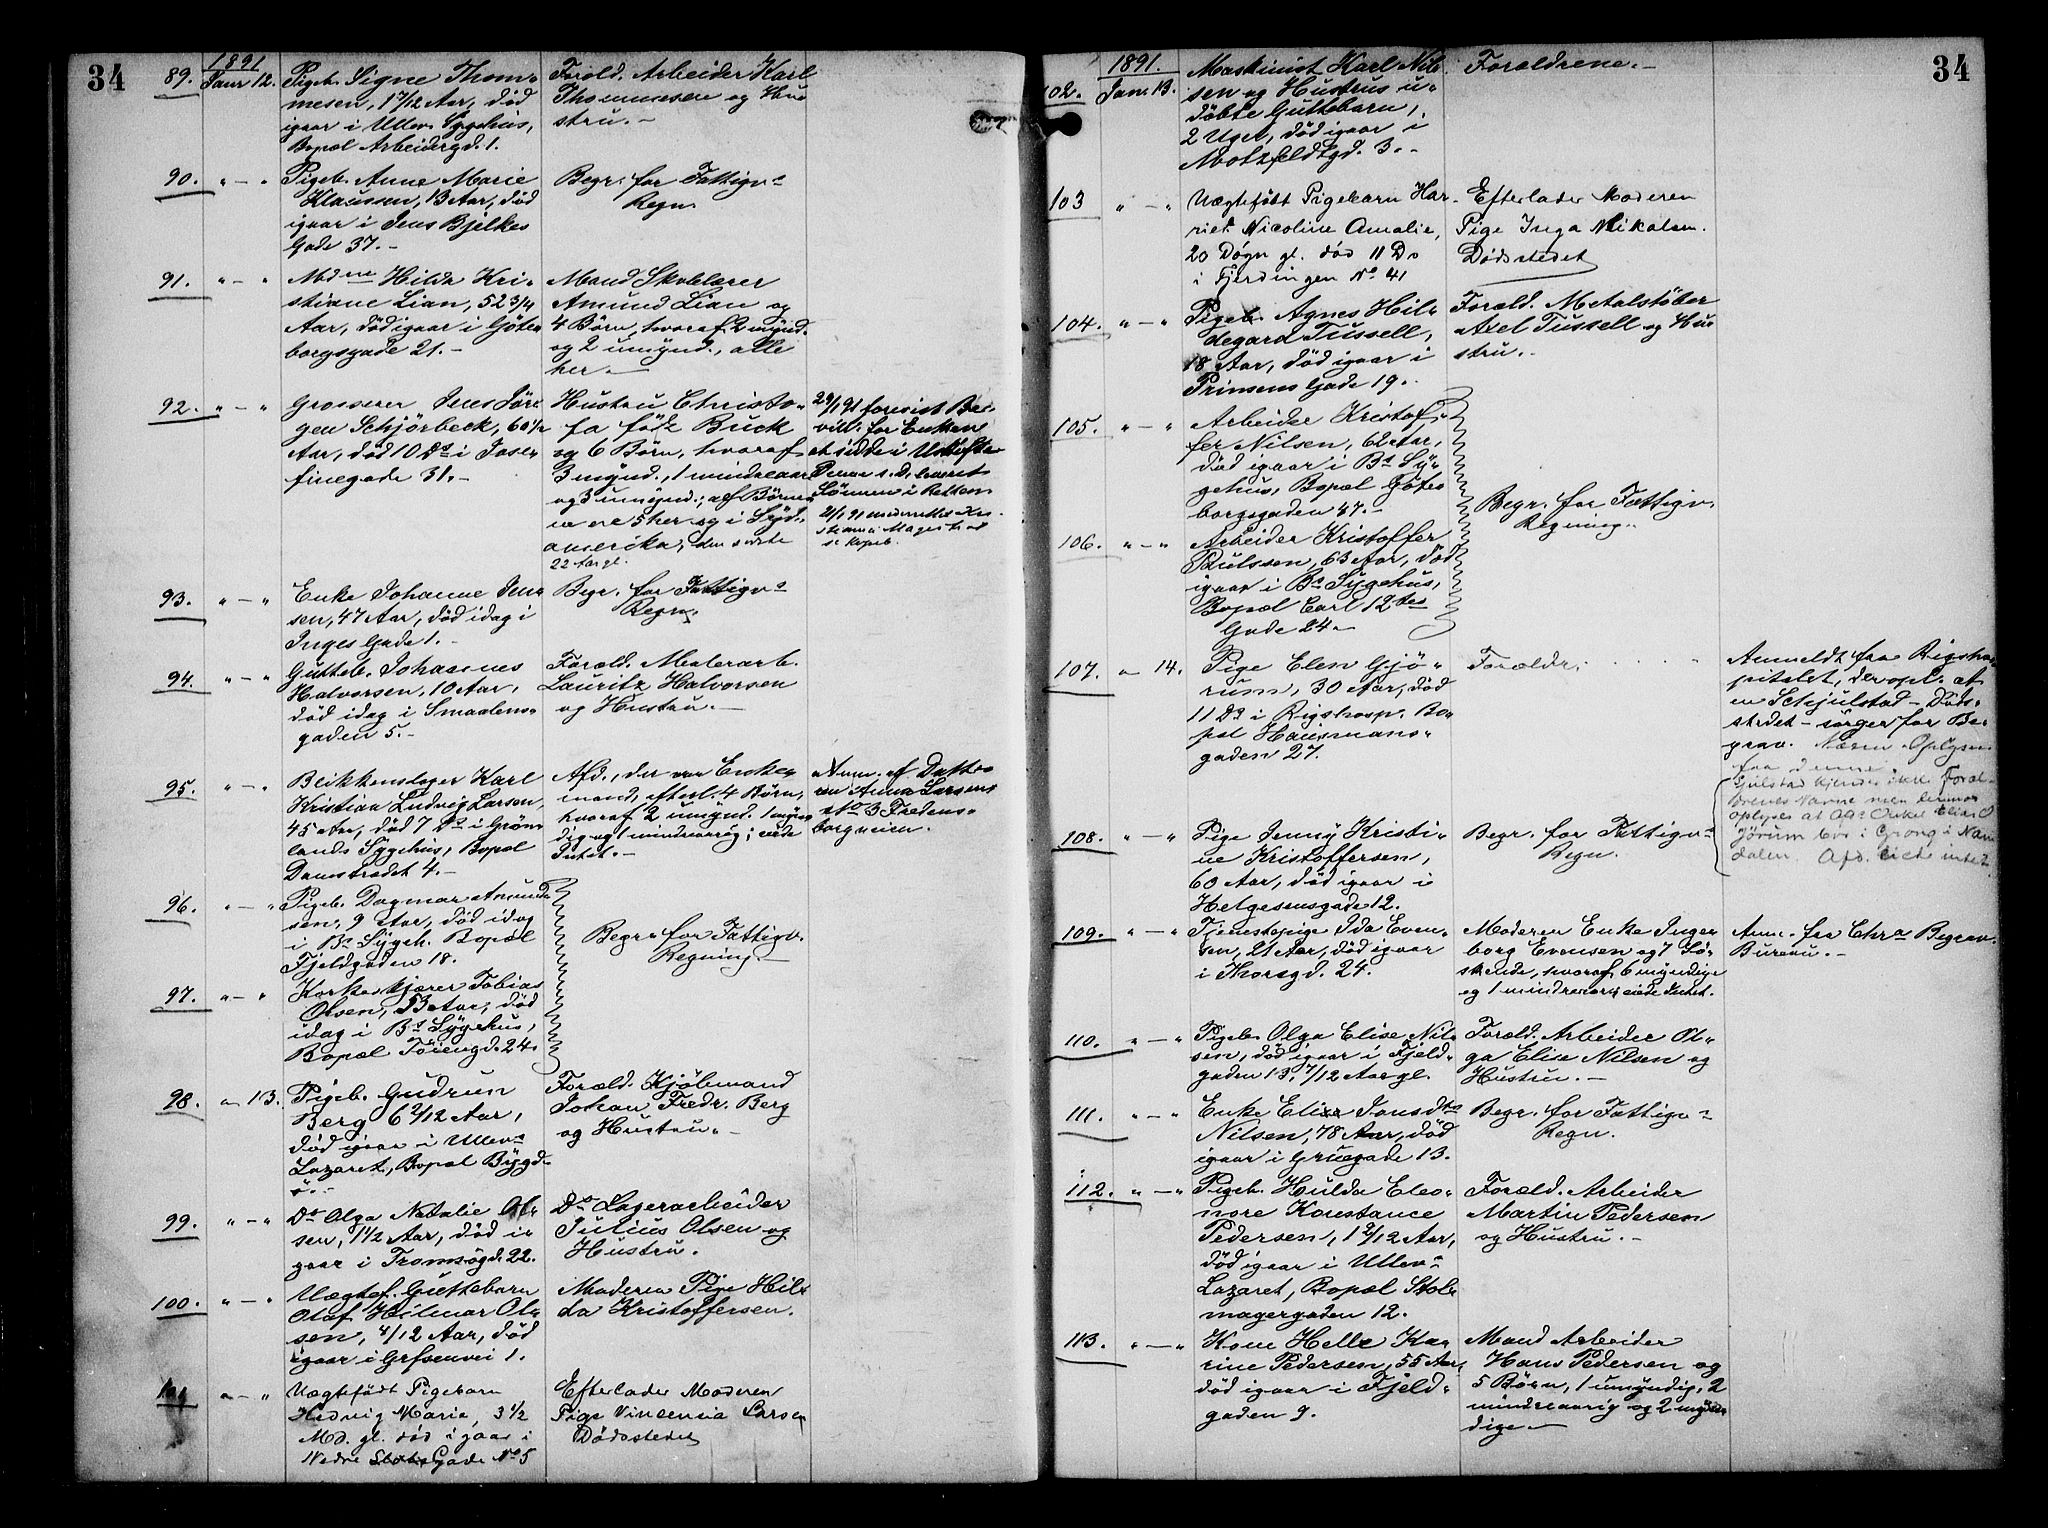 34
1891
89. Janr 12. Pigeb. Signe Thom-
mesen, 1 7/12 Aar, død
igaar i Ullev. Sygehus,
Bopæl Arbeidergd. 1.
Foræld. Arbeider Karl
Thommesen og Hu-
stru.-
90. " - " Pigeb. Anne Marie
Klaussen, 13 Aar, død
igaar i Jens Bjelkes
Gade 37.-
Begr. for Fattigv.
Regn.
91. " - " Md me Hilda Kri-
stiane Lian, 52 3/4
Aar, død igaar i Göte-
borgsgade 21.-
Mand Skolelærer
Amund Lian og
4 Børn, hvoraf 2 mynd.
og 2 umynd., alle
her.-
92. " - " Grosserer Jens Jör-
gen Schjörbeck, 60 1/2
Aar, död 10 Ds i Jose-
finegade 31.-
Hustru Christo-
fa født Buck
og 6 Børn, hvoraf
3 mynd., 1 mindreaar.
og 3 umynd.; af Børne-
ne re 5 her og i Syd-
amerika, den sidste
22 Aar gl.
29/1 91 forevist Be-
vill. for Enken
at sidde i Uskifte
93. " - " Enke Johanne Jen-
sen, 47 Aar, død idag i
Inges Gade 1.-
Begr. for Fattigv.
Regn.
94. " - " Gutteb. Johannes
Halvorsen, 10 Aar,
död idag i Smaalens-
gaden 5.-
Foræld. Malerarb.
Lauritz Halvorsen
og Hustru.-
95. " - " Blikkenslager Karl
Kristian Ludvig Larsen,
45 Aar, død 7 Ds i Grøn-
lands Sygehus, Bopæl
Damstrædet 4.-
Afd., der var Enke-
mand, efterl. 4 Børn,
hvoraf 2 umynd. 1 myn-
dig og 1 mindreaarig; eiede
Intet.-
Anm. af Datte-
ren Anna Larsen,
No 3 Fredens-
borgveien.
96. " - " Pigeb. Dagmar Amund-
sen, 9 Aar, død idag
i Bs Sygeh. Bopæl
Fjeldgaden 18.
Begr. for Fattigv.
Regning.-
97. " - " Korkeskjærer Tobias
Olsen, 53 Aar, død
idag i Bs Sygehus,
Bopæl Töiengd. 24.
98. " - 13. Pigeb. Gudrun
Berg 6 2/12 Aar,
död igaar i Ullev.
Lazaret, Bopæl Bygd-
ö.-
Foræld. Kjöbmand
Johan Fredr. Berg
og Hustru.-
99. " - " Do Olga Natalie Ol-
sen, 1 1/2 Aar, død i-
gaar i Tromsögd. 22.
Do Lagerarbeider
Julius Olsen og
Hustru.
100. " - " Uægtef. Guttebarn
Olaf Hilmar Ol-
sen, 4/12 Aar, död
igaar i Grefsenvei 1.
Moderen Pige Hil-
da Kristoffersen.
101 " - " Uægtefödt Pigebarn
Hedvig Marie, 3 1/2
Md. gl. död igaar i
Nedre Slots Gade No 5
Efterlader Moderen
Pige Vincensia Larsen
Dödsstedet
34
1891
102. Jan. 13. Maskinist Karl Nil-
sen og Hustrus u-
döbte Guttebarn,
2 Uger, död igaar i
Motzfeldtgd. 3.-
Forældrene.-
103 " - " Uægtefödt Pigebarn Har-
riet Nicoline Amalie,
20 Døgn gl. död 11 Ds
i Fjerdingen No 41
Efterlader Moderen
Pige Inga Nikolsen.
Dödsstedet
104. " - " Pigeb. Agnes Hil-
degard Tussell,
18 Aar, død igaar i
Prinsens Gade 19.-
Foræld. Metalstöber
Axel Tussell og Hu-
stru.-
105. " - " Arbeider Kristof-
fer Nilsen, 62 Aar,
död igaar i Bs Sy-
gehus, Bopæl Göte-
borgsgaden 47.-
Begr. for Fattigv.
Regning.
106. " - " Arbeider Kristoffer
Paulssen, 63 Aar, død
igaar i Bs Sygehus,
Bopæl Carl 12tes
Gade 24.-
107. " 14. Pige Elen Gjö-
rum, 30 Aar, død
11 Ds i Rigshosp. Bo-
pæl Hausmans-
gaden 27.
Forældr.
Anmeldt fra Rigsho-
pitalet, der opl. at
en Schjulstad - Döds-
stedet - sørger for Be-
grav. Næres Oplysn.
fra denne
Gjulstad kjender ikke Foræl-
drenes Navne men derimod
oplyses at Afd. Onkel Elias
Jörum bor i Grong i Nam-
dalen. Afd. eiede intet.
108. " - " Pige Jenny Kristi-
ne Kristoffersen,
60 Aar, død igaar i
Helgesensgade 12.
Begr. for Fattigv.
Regn.
109. " - " Tjenestepige Ida Even-
sen, 21 Aar, død igaar
i Thorsgd. 24.
Moderen Enke Inge-
borg Evensen og 7 Sö-
skende, hvoraf 6 myndige
og 1 mindreaar; eiede Intet.
Anm. fra Chra Begrav.
Bureau.-
110. " - " Pigeb. Olga Elise Nil-
sen, död igaar i Fjeld-
gaden 13, 7/12 Aar gl.
Foræld. Arbeider Ol-
ga Elise Nilsen og
Hustru.-
111. " - " Enke Elise Jonsdtr
Nilsen, 78 Aar, død
igaar i Gruegade 13.
Begr. for Fattigv.
Regn.
112. " - " Pigeb. Hulda Eleo-
nore Konstance
Pedersen, 1 9/12 Aar,
död igaar i Ullev.
Lazaret, Bopæl Stol-
magergaden 12.
Foræld. Arbeider
Martin Pedersen
og Hustru.-
113. " - " Kone Helle Ka-
rine Pedersen, 55 Aar,
död igaar i Fjeld-
gaden 9.
Mand Arbeider
Hans Pedersen og
5 Børn, 1 umyndig, 2
mindreaarig og 2 myn-
dige.-